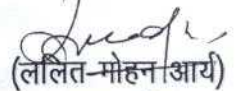 (ललित मोहन आर्य)